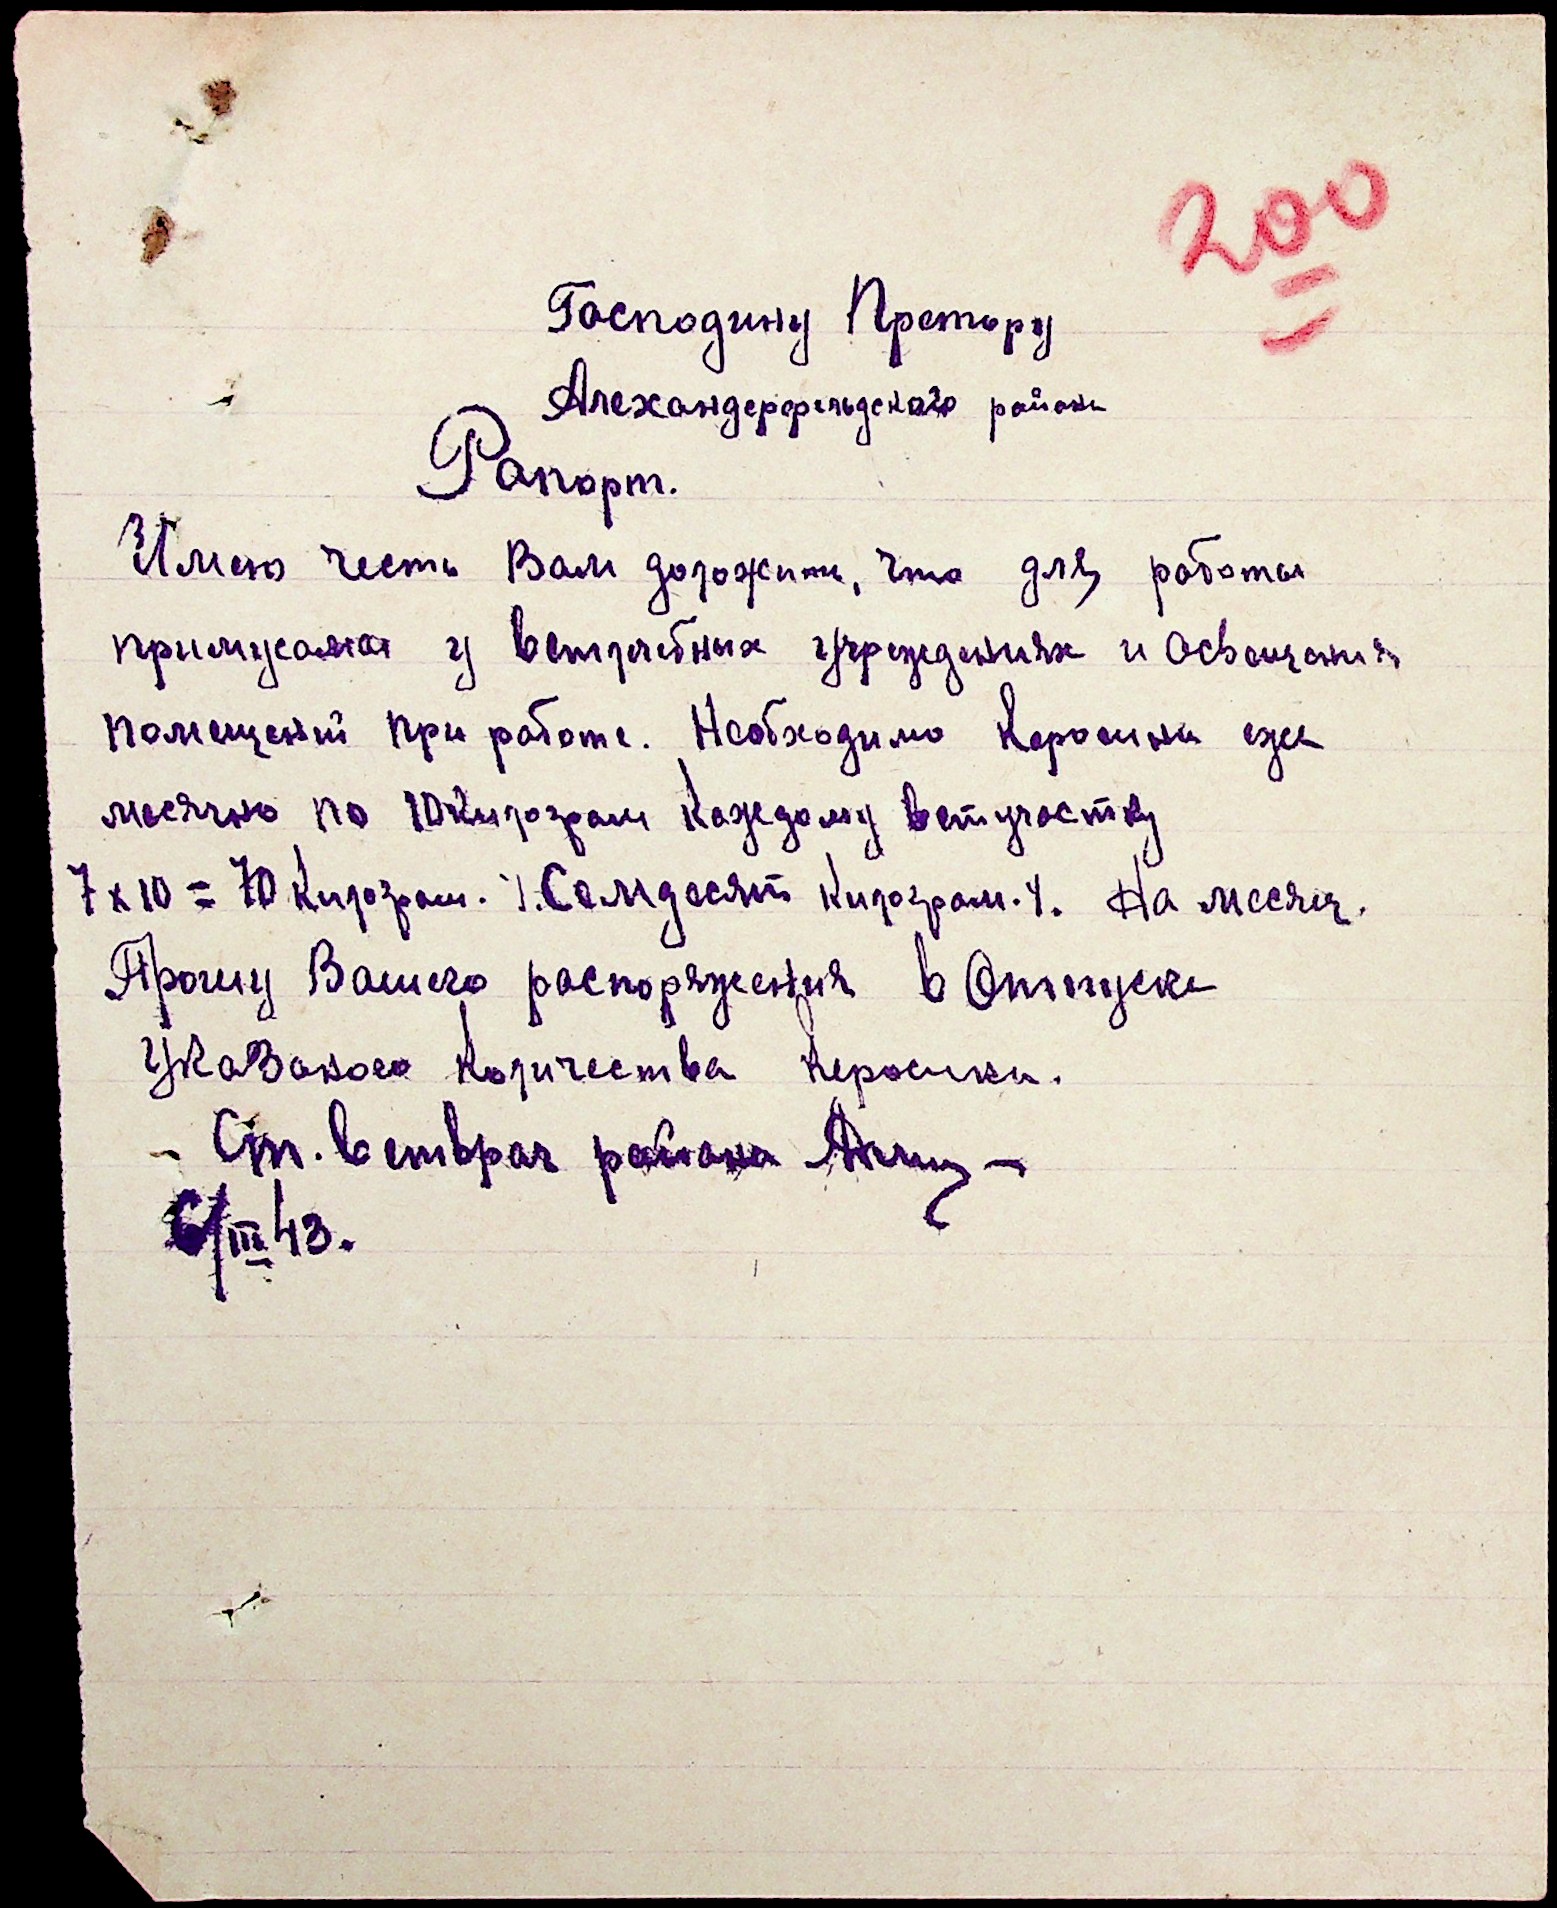 200
Господину Претору
Александерфельдского района
Рапорт.
Имею честь Вам доложить, что для работы
примусами у ветлечебных учреждениях и освещения
помещений при работе. Необходимо Керосина еже
месячно по 10 Килограм Каждому ветучастку
7 x 10 = 70 Килограм. /. Семдесят килограм. /. На месяц.
Прошу Вашего распоряжения в Отпуске
Указаного Количества Керосина.
Ст. Ветврач района
6/III 43.